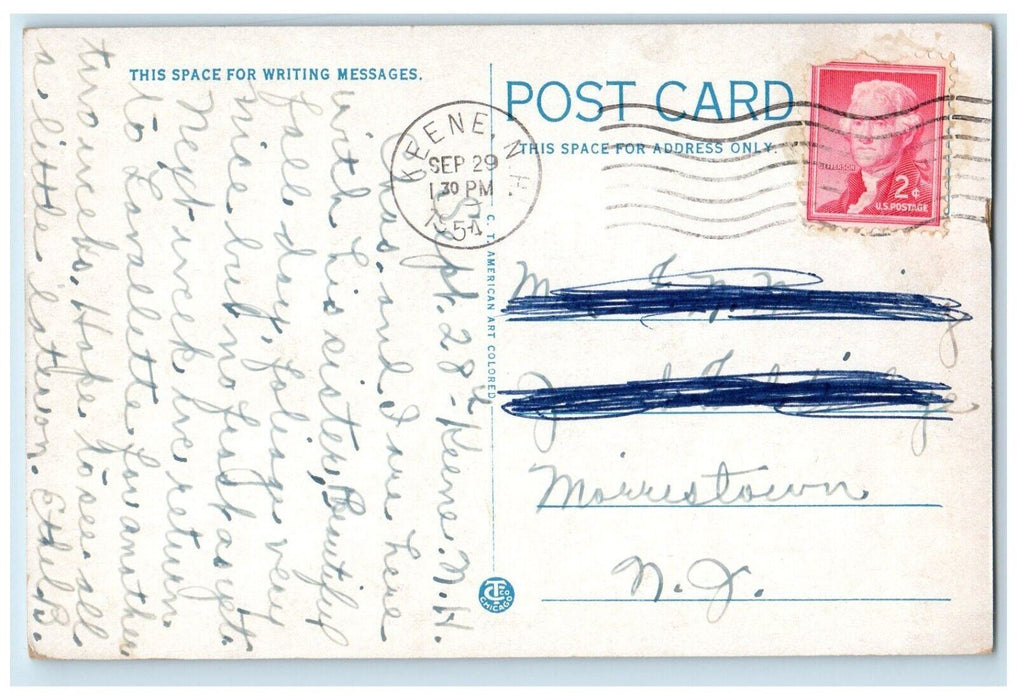 THIS SPACE FOR WRITING MESSAGES.
POST CARD
THIS SPACE FOR ADDRESS ONLY.
KEENE, N.H.
SEP 29
1 30 PM
1954
JEFFERSON
2¢
U.S. POSTAGE
C. T. AMERICAN ART COLORED
CTCO
CHICAGO
Sept. 28th - Keene. N.H.
Chas. and I are here
with his sister, Beautiful
fall day, foliage very
nice but no frost as yet.
Next week we return
to Lavallette for another
two weeks. Hope to see all
a little later on. Ethel B.
M
Morristown
N. J.